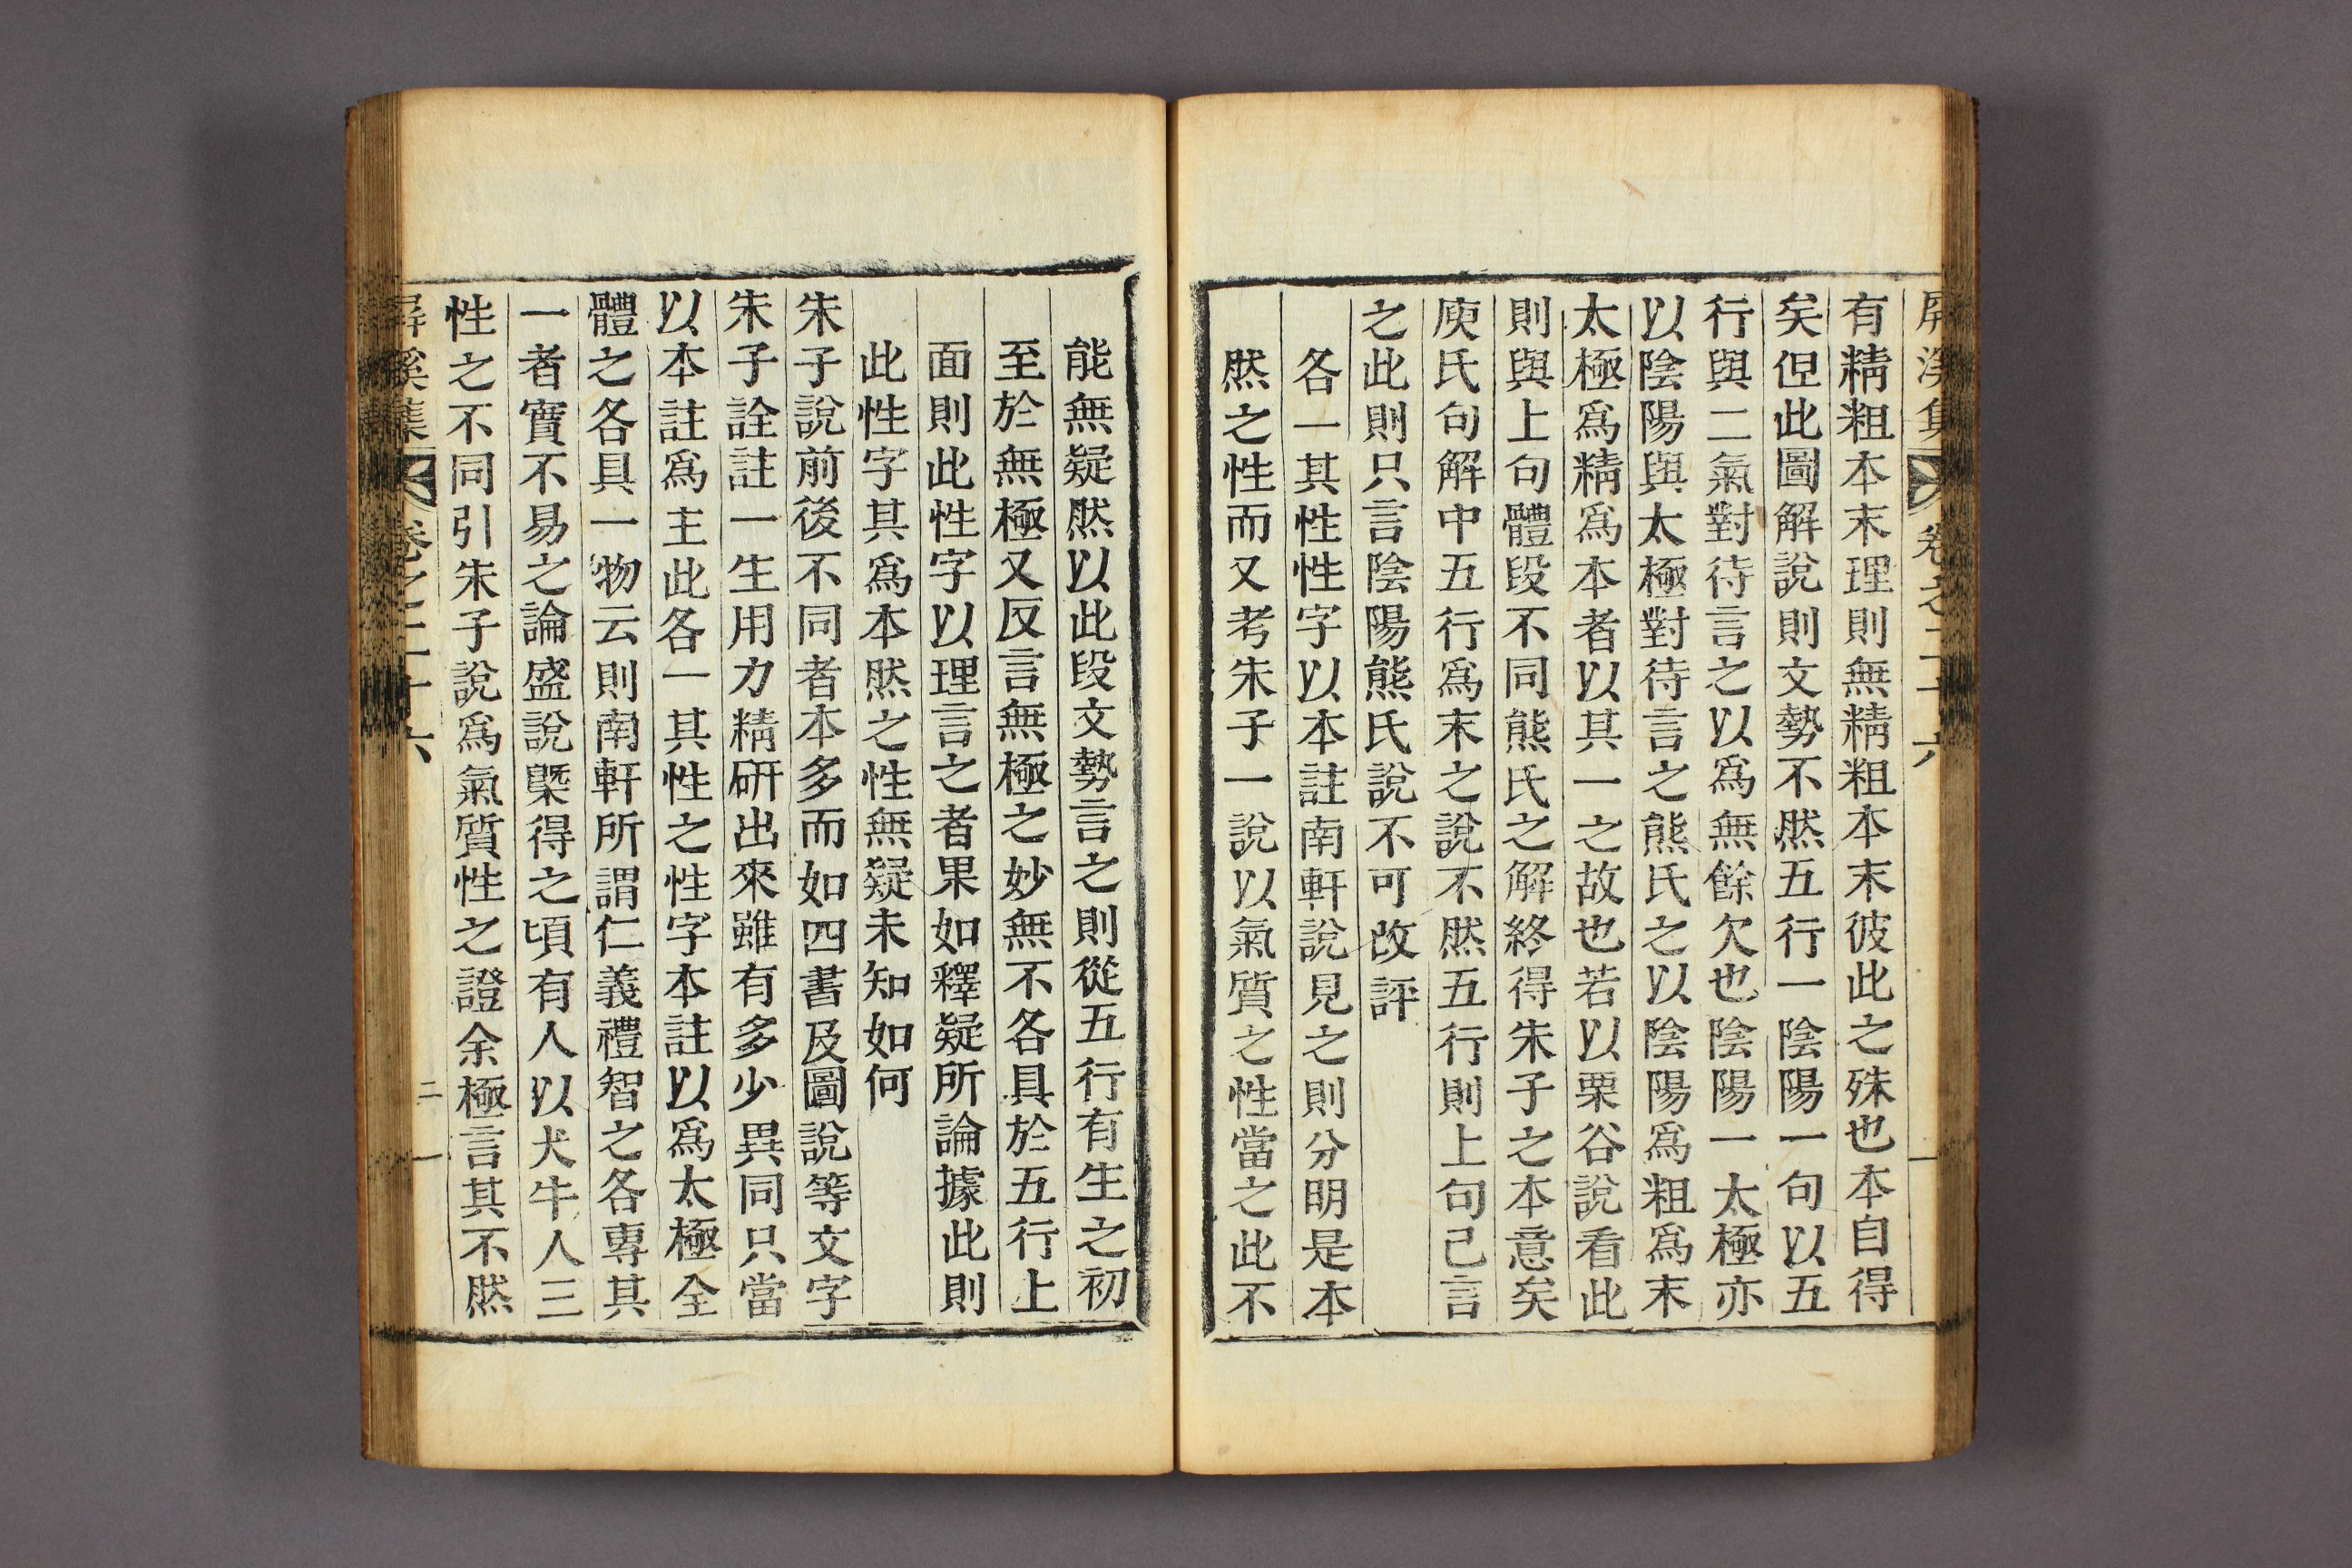 屛溪集 卷之二十六 一
有精粗本末理則無精粗本末彼此之殊也本自得
矣但此圖解說則文勢不然五行一陰陽一句以五
行與二氣對待言之以爲無餘欠也陰陽一太極亦
以陰陽與太極對待言之熊氏之以陰陽爲粗爲末
太極爲精爲本者以其一之故也若以栗谷說看此
則與上句體段不同熊氏之解終得朱子之本意矣
庾氏句解中五行爲末之說不然五行則上句已言
之此則只言陰陽熊氏說不可改評
各一其性性字以本註南軒說見之則分明是本
然之性而又考朱子一說以氣質之性當之此不
能無疑然以此段文勢言之則從五行有生之初
至於無極又反言無極之妙無不各具於五行上
面則此性字以理言之者果如釋疑所論據此則
此性字其爲本然之性無疑未知如何
朱子說前後不同者本多而如四書及圖說等文字
朱子詮註一生用力精硏出來雖有多少異同只當
以本註爲主此各一其性之性字本註以爲太極全
體之各具一物云則南軒所謂仁義禮智之各專其
一者實不易之論盛說槩得之頃有人以犬牛人三
性之不同引朱子說爲氣質性之證余極言其不然
屛溪集 卷之二十六 二